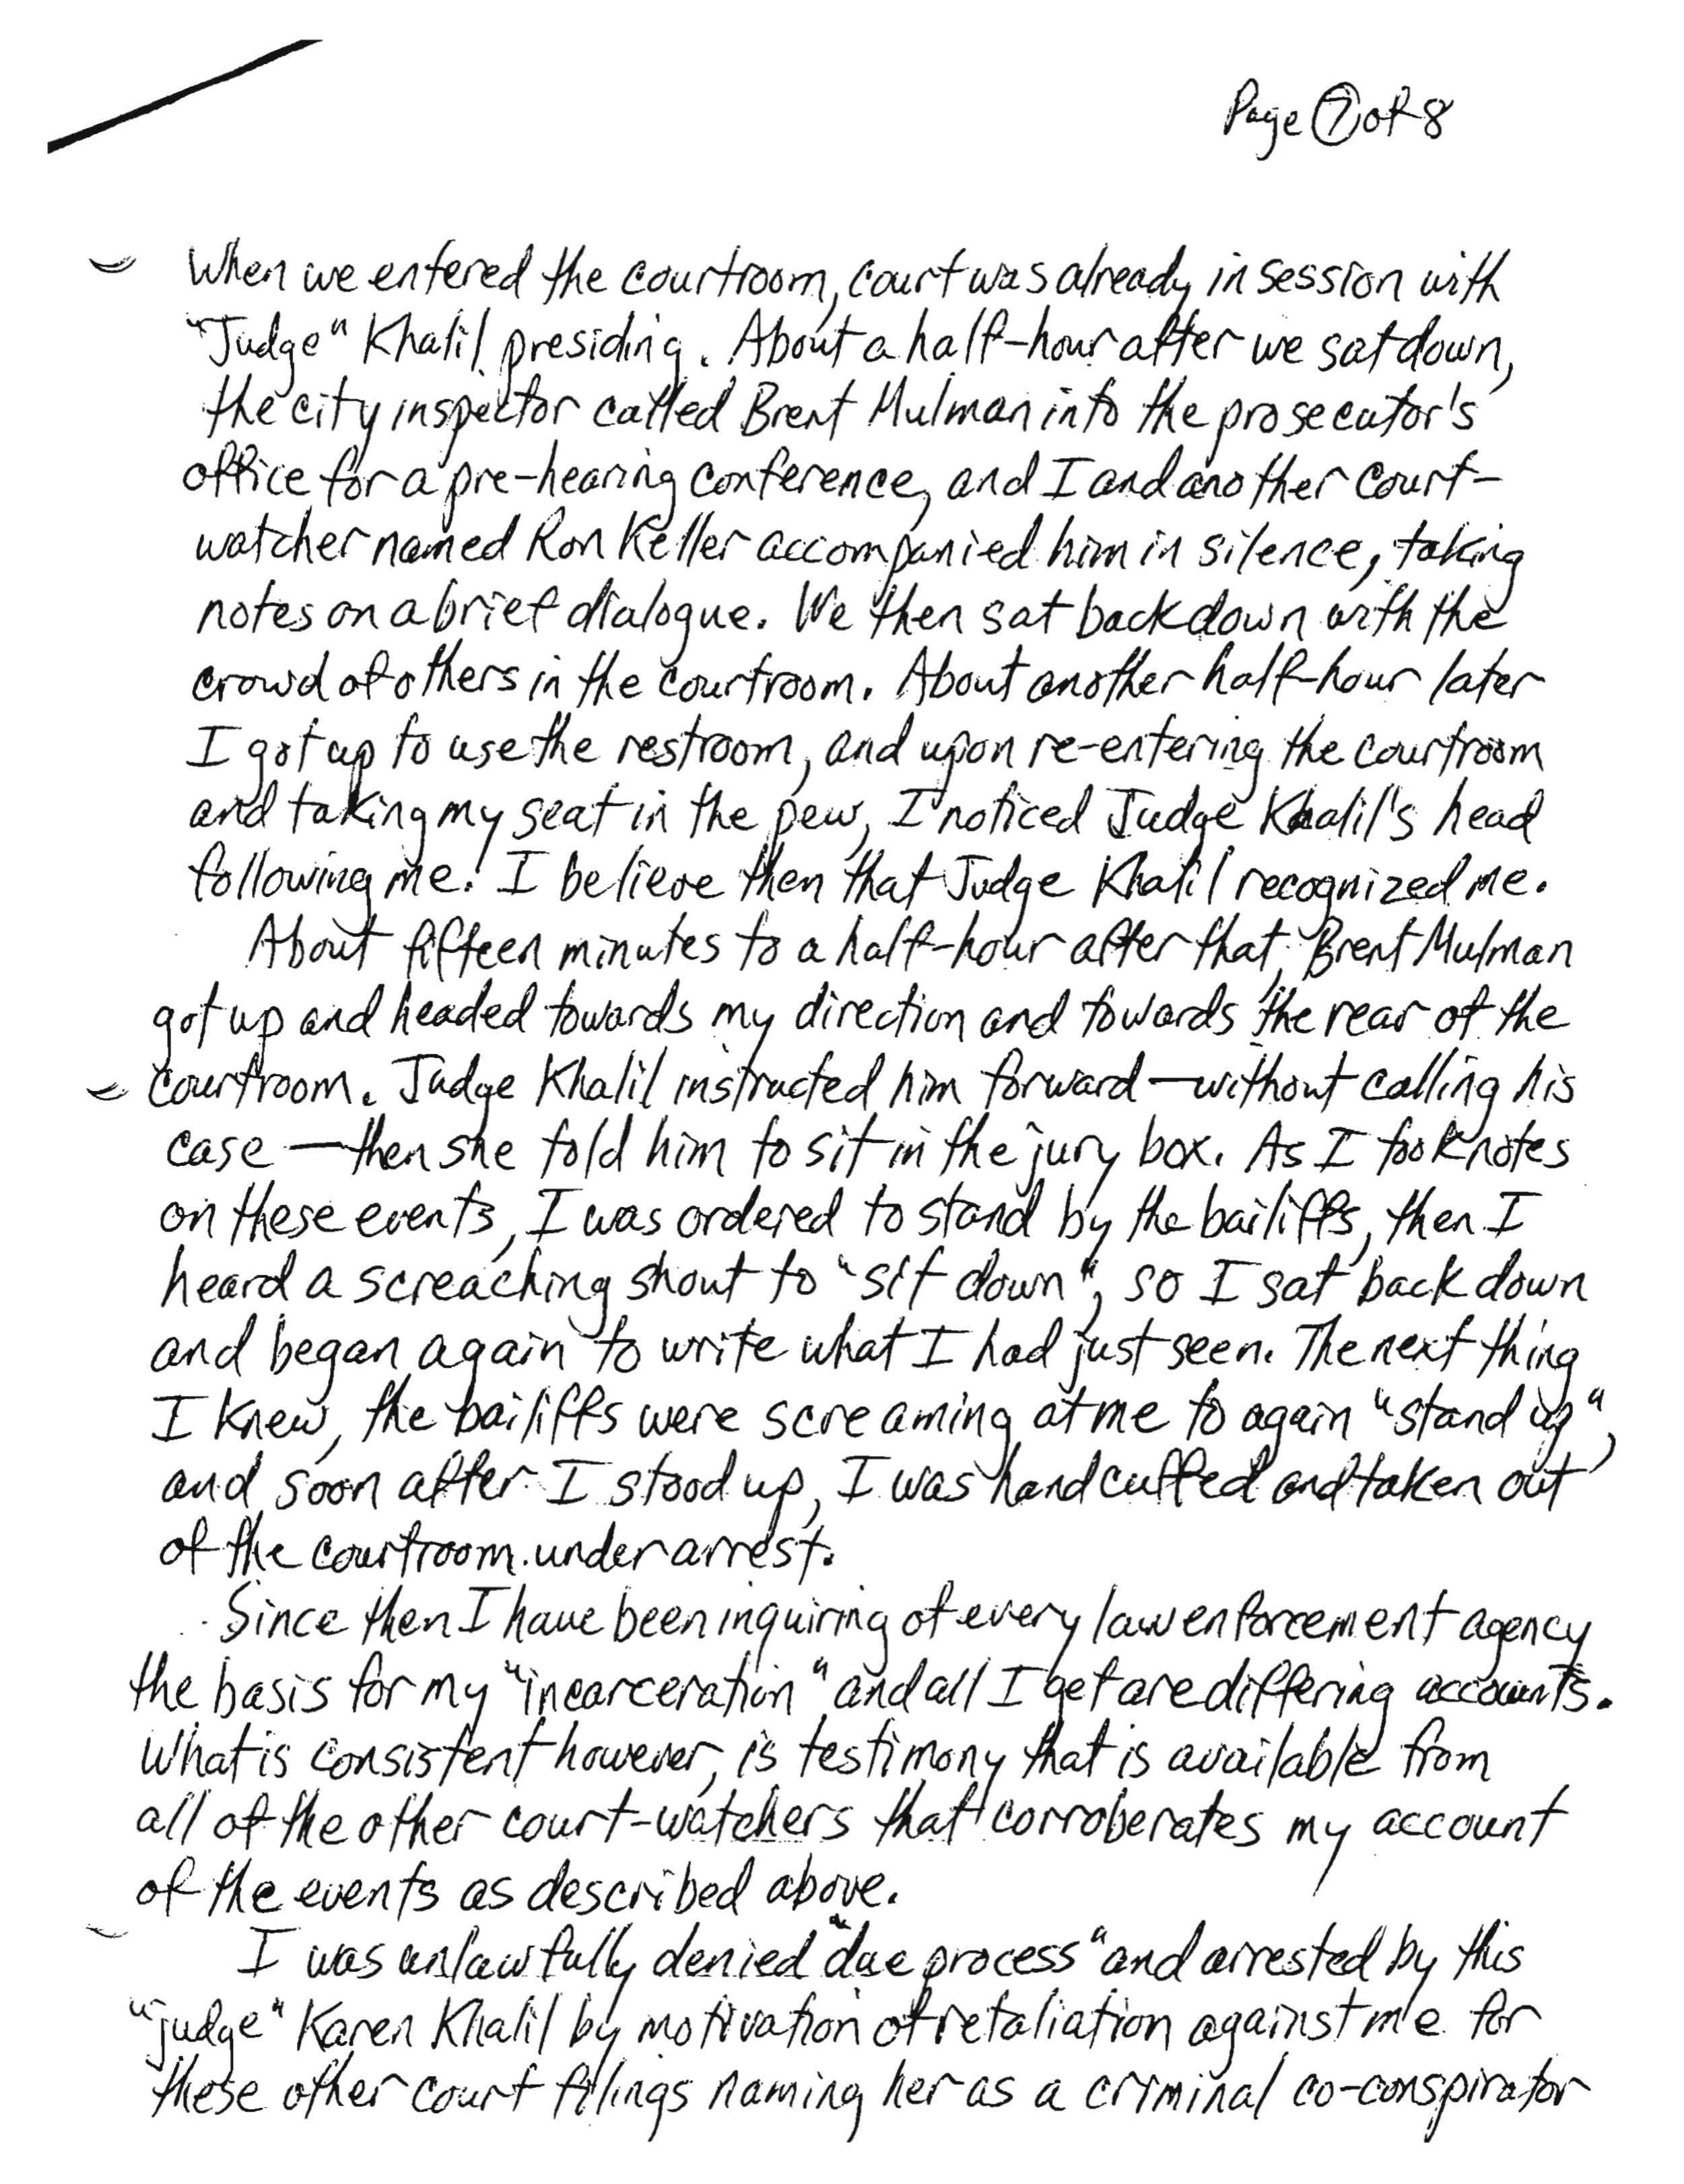 Page 7 of 8
When we entered the courtroom, court was already in session with
"Judge" Khalil presiding. About a half-hour after we sat down,
the city inspector called Brent Mulman into the prosecutor's
office for a pre-hearing conference, and I and another court-
watcher named Ron Keller accompanied him in silence, taking
notes on a brief dialogue. We then sat back down with the
crowd of others in the courtroom. About another half-hour later
I got up to use the restroom, and upon re-entering the courtroom
and taking my seat in the pew, I noticed Judge Khalil's head
following me. I believe then that Judge Khalil recognized me.
About fifteen minutes to a half-hour after that, Brent Mulman
got up and headed towards my direction and towards the rear of the
courtroom. Judge Khalil instructed him forward — without calling his
case — then she told him to sit in the jury box. As I took notes
on these events, I was ordered to stand by the bailiffs, then I
heard a screaching shout to "sit down", so I sat back down
and began again to write what I had just seen. The next thing
I knew, the bailiffs were screaming at me to again "stand up",
and soon after I stood up, I was handcuffed and taken out
of the courtroom under arrest.
Since then I have been inquiring of every law enforcement agency
the basis for my "incarceration" and all I get are differing accounts.
What is consistent however, is testimony that is available from
all of the other court-watchers that corroberates my account
of the events as described above.
I was unlawfully denied "due process" and arrested by this
"judge" Karen Khalil by motivation of retaliation against me for
these other court filings naming her as a criminal co-conspirator